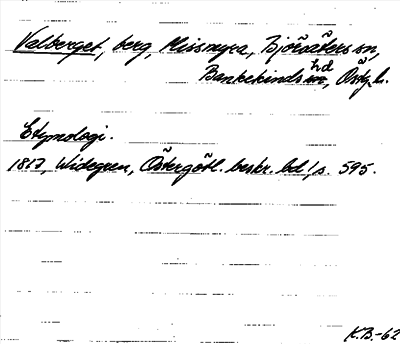 Valberget, berg, Missmyra, Björsäters sn,
Bankekinds hd, Östg. l.
Etymologi.
1817, Widegren, Östergötl. beskr. bd 1, s. 595.
K.B.-62